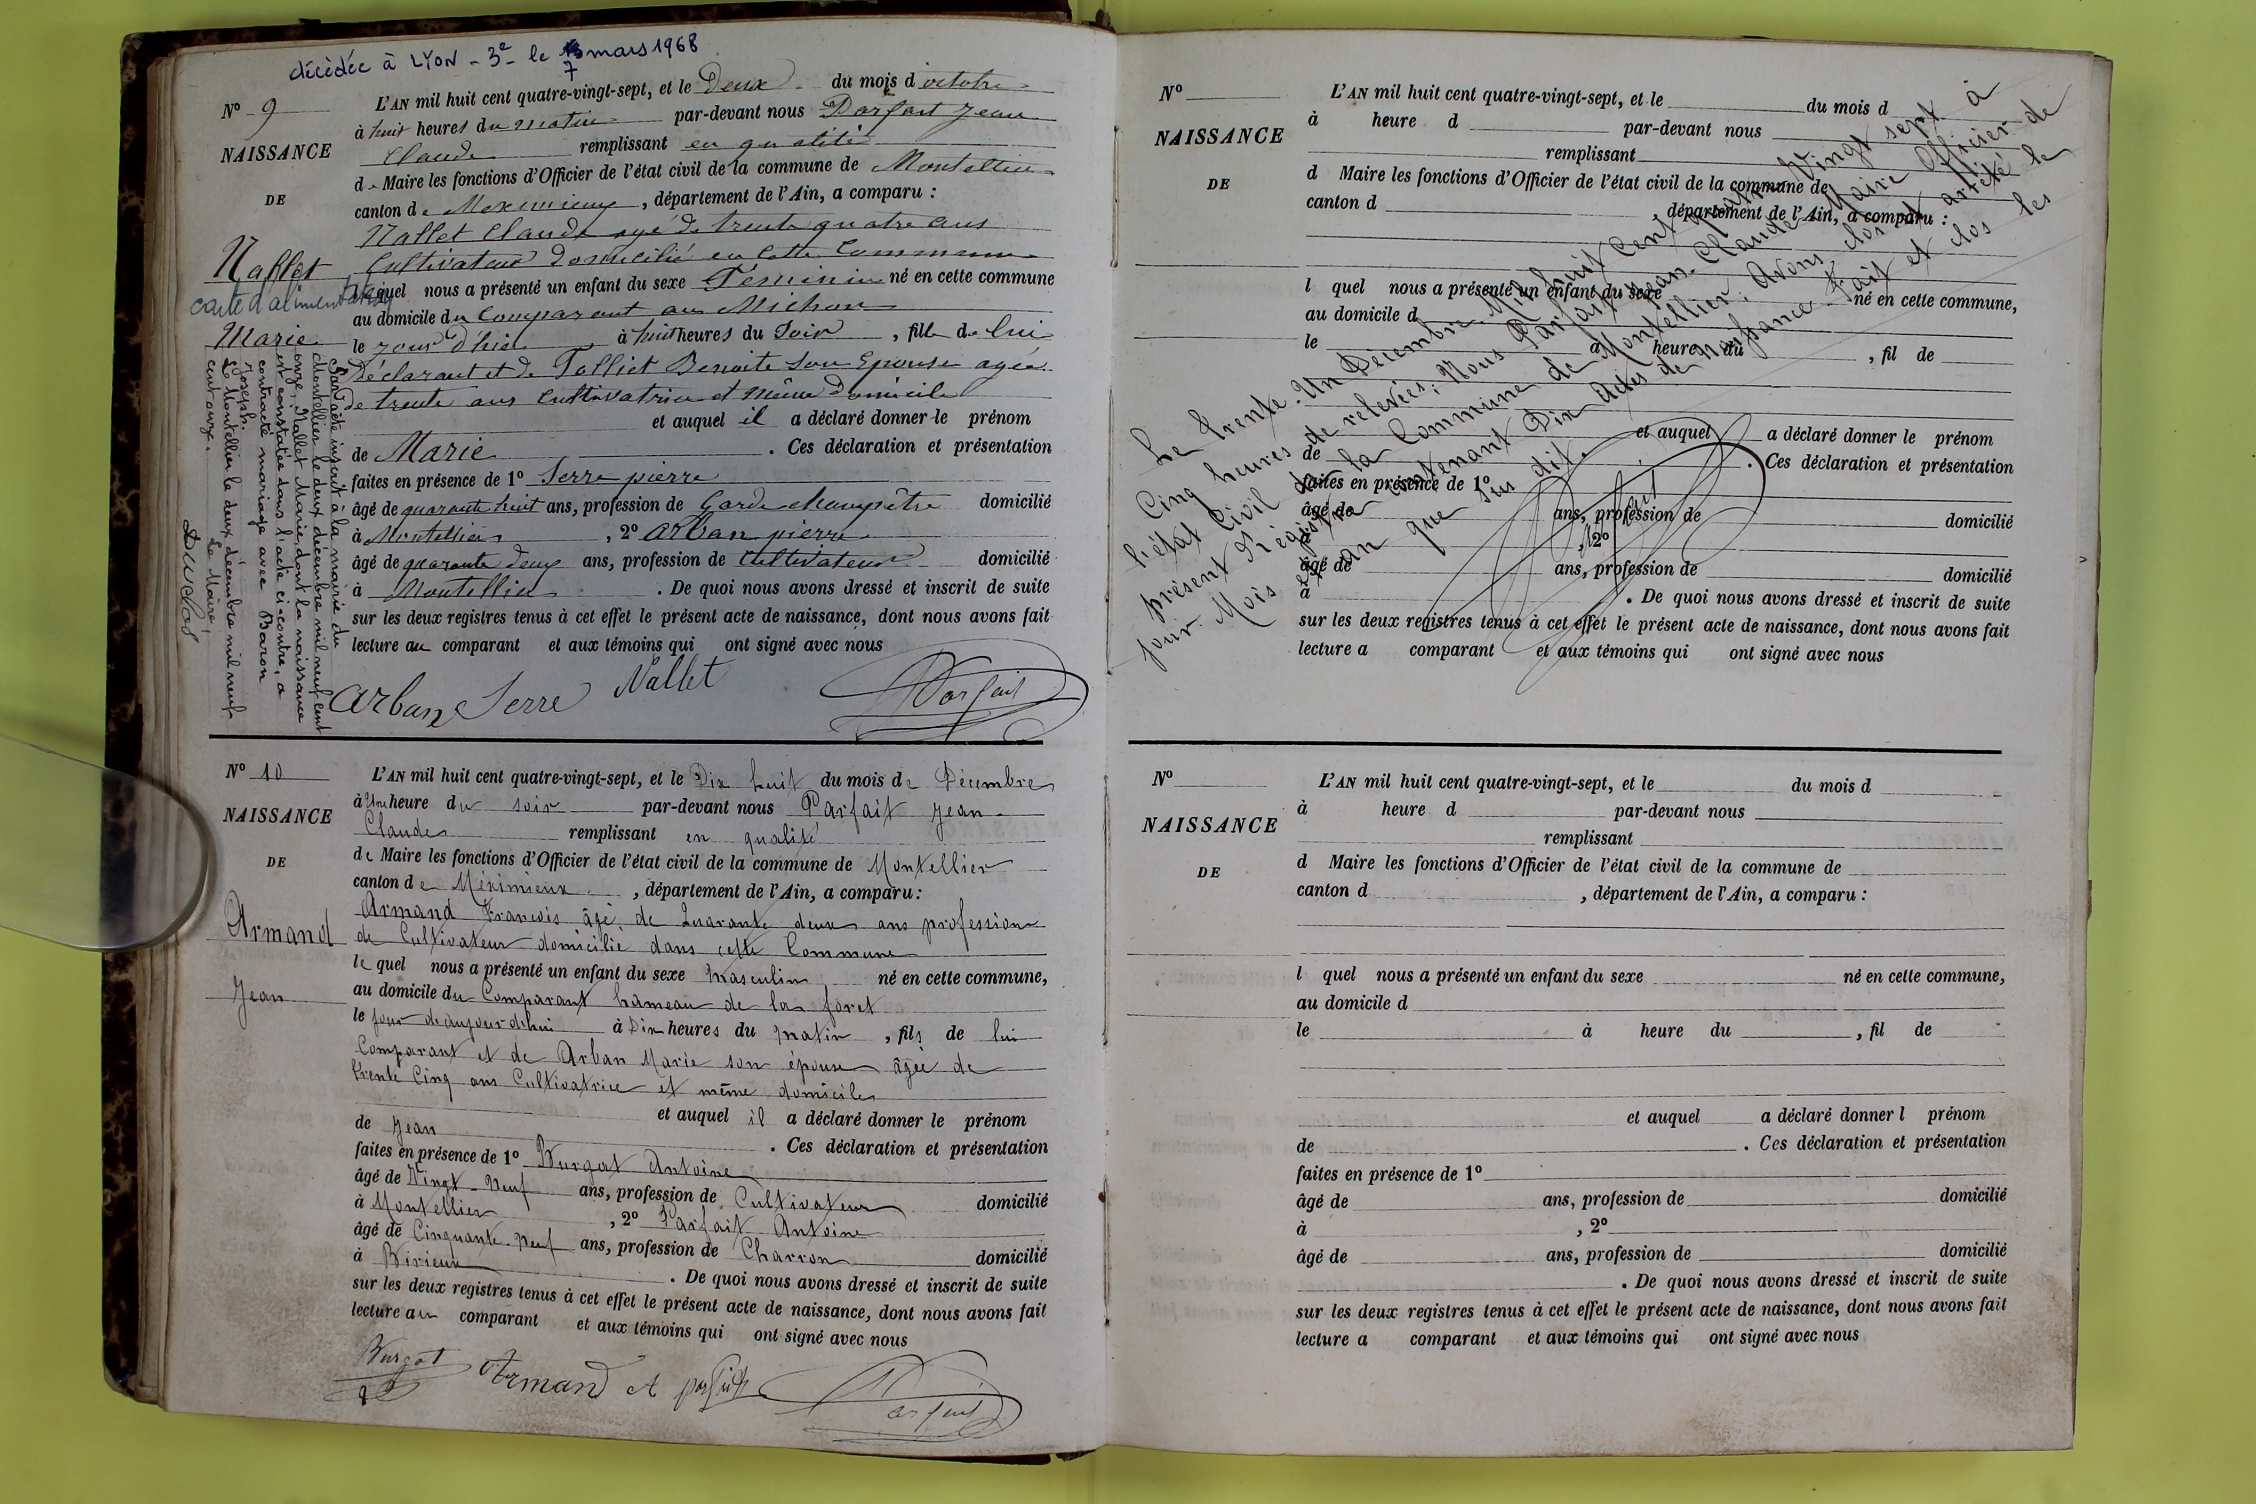 décédée à LYON - 3e - le 7 mars 1968
N° 9
NAISSANCE
DE
Nallet
carte d'alimentation
Marie
L'AN mil huit cent quatre-vingt-sept, et le Deux du mois d'octobre
à huit heures du matin par-devant nous Parfait Jean
Claude remplissant en qualité
de Maire les fonctions d'Officier de l'état civil de la commune de Montellier
canton de Meximieux, département de l'Ain, a comparu :
Nallet Claude agé de trente quatre ans
Cultivateur domicilié en cette Commune
lequel nous a présenté un enfant du sexe Féminin né en cette commune
au domicile du Comparant au Michon
le jour d'hier à huit heures du Soir, fille de lui
Déclarant et de Tolliet Benoite son Epouse agée
de trente ans Cultivatrice et même Domicile
et auquel il a déclaré donner le prénom
de Marie. Ces déclaration et présentation
faites en présence de 1° Serre pierre
âgé de quarante huit ans, profession de Garde champêtre domicilié
à Montellier, 2° Arban pierre
âgé de quarante deux ans, profession de Cultivateur domicilié
à Montellier. De quoi nous avons dressé et inscrit de suite
sur les deux registres tenus à cet effet le présent acte de naissance, dont nous avons fait
lecture au comparant et aux témoins qui ont signé avec nous
Arban Serre Nallet Parfait
Par acte inscrit à la mairie du
Montellier le deux décembre mil neuf cent
onze, Nallet Marie, dont la naissance
est constatée dans l'acte ci-contre, a
contracté mariage avec Baron
Joseph.
Le Montellier le deux décembre mil neuf
cent onze.
Le Maire,
N° 10
NAISSANCE
DE
Armand
Jean
L'AN mil huit cent quatre-vingt-sept, et le Dix huit du mois de Décembre
à Une heure du soir par-devant nous Parfait Jean
Claude remplissant en qualité
de Maire les fonctions d'Officier de l'état civil de la commune de Montellier
canton de Méximieux, département de l'Ain, a comparu :
Armand François âgé de Quarante deux ans profession
de Cultivateur domicilié dans cette Commune
le quel nous a présenté un enfant du sexe masculin né en cette commune,
au domicile du Comparant hameau de la foret
le jour de aujourdhui à Dix heures du matin, fils de lui
Comparant et de Arban Marie son épouse âgée de
trente Cinq ans Cultivatrice et même domicile
et auquel il a déclaré donner le prénom
de Jean. Ces déclaration et présentation
faites en présence de 1° Burgat Antoine
âgé de Vingt-Neuf ans, profession de Cultivateur domicilié
à Montellier, 2° Parfait Antoine
âgé de Cinquante-Neuf ans, profession de Charron domicilié
à Birieux. De quoi nous avons dressé et inscrit de suite
sur les deux registres tenus à cet effet le présent acte de naissance, dont nous avons fait
lecture au comparant et aux témoins qui ont signé avec nous
Burgat Armand A parfait Parfait
N°
NAISSANCE
DE
L'AN mil huit cent quatre-vingt-sept, et le du mois d
à heure d par-devant nous
remplissant
d Maire les fonctions d'Officier de l'état civil de la commune de
canton d , département de l'Ain, a comparu :
l quel nous a présenté un enfant du sexe né en cette commune,
au domicile d
le à heure du , fil de
et auquel a déclaré donner le prénom
de . Ces déclaration et présentation
faites en présence de 1°
âgé de ans, profession de domicilié
à , 2°
âgé de ans, profession de domicilié
à . De quoi nous avons dressé et inscrit de suite
sur les deux registres tenus à cet effet le présent acte de naissance, dont nous avons fait
lecture a comparant et aux témoins qui ont signé avec nous
Le Trente-Un Décembre Mil huit Cent Quatre Vingt sept à
Cinq heures de relevées; Nous Parfait Jean-Claude Maire Officier de
l'état Civil de la Commune de Montellier; Avons clos et arrêté le
présent régistre contenant Dix Actes de Naissance Fait et clos les
jour Mois et an que sus dit.
Parfait
N°
NAISSANCE
DE
L'AN mil huit cent quatre-vingt-sept, et le du mois d
à heure d par-devant nous
remplissant
d Maire les fonctions d'Officier de l'état civil de la commune de
canton d , département de l'Ain, a comparu :
l quel nous a présenté un enfant du sexe né en cette commune,
au domicile d
le à heure du , fil de
et auquel a déclaré donner l prénom
de . Ces déclaration et présentation
faites en présence de 1°
âgé de ans, profession de domicilié
à , 2°
âgé de ans, profession de domicilié
. De quoi nous avons dressé et inscrit de suite
sur les deux registres tenus à cet effet le présent acte de naissance, dont nous avons fait
lecture a comparant et aux témoins qui ont signé avec nous